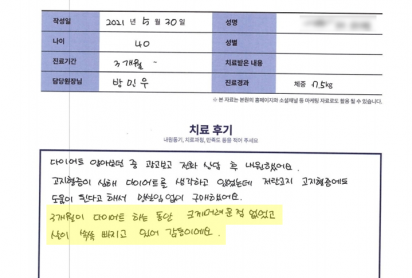 작성일 2021 년 5 월 30일 성명
나이 40 성별
진료기간 3개월 - 치료받은 내용
담당원장님 방민우 진료경과 체중 -17.5kg
※ 본 자료는 본원의 홈페이지와 소셜채널 등 마케팅 자료로도 활용 될 수 있습니다.
치료 후기
내원동기, 치료과정, 만족도 등을 적어 주세요
다이어트 알아보던 중 광고보고 전화 상담 후 내원했어요.
고지혈증이 심해 다이어트를 생각하고 있었는데 저탄고지 고지혈증에도
도움이 된다고 해서 망설임 없이 구매하였어요.
3개월이 다이어트 하는 동안 크게 어려운 점 없었고
살이 쑥쑥 빠지고 있어 감동이에요.